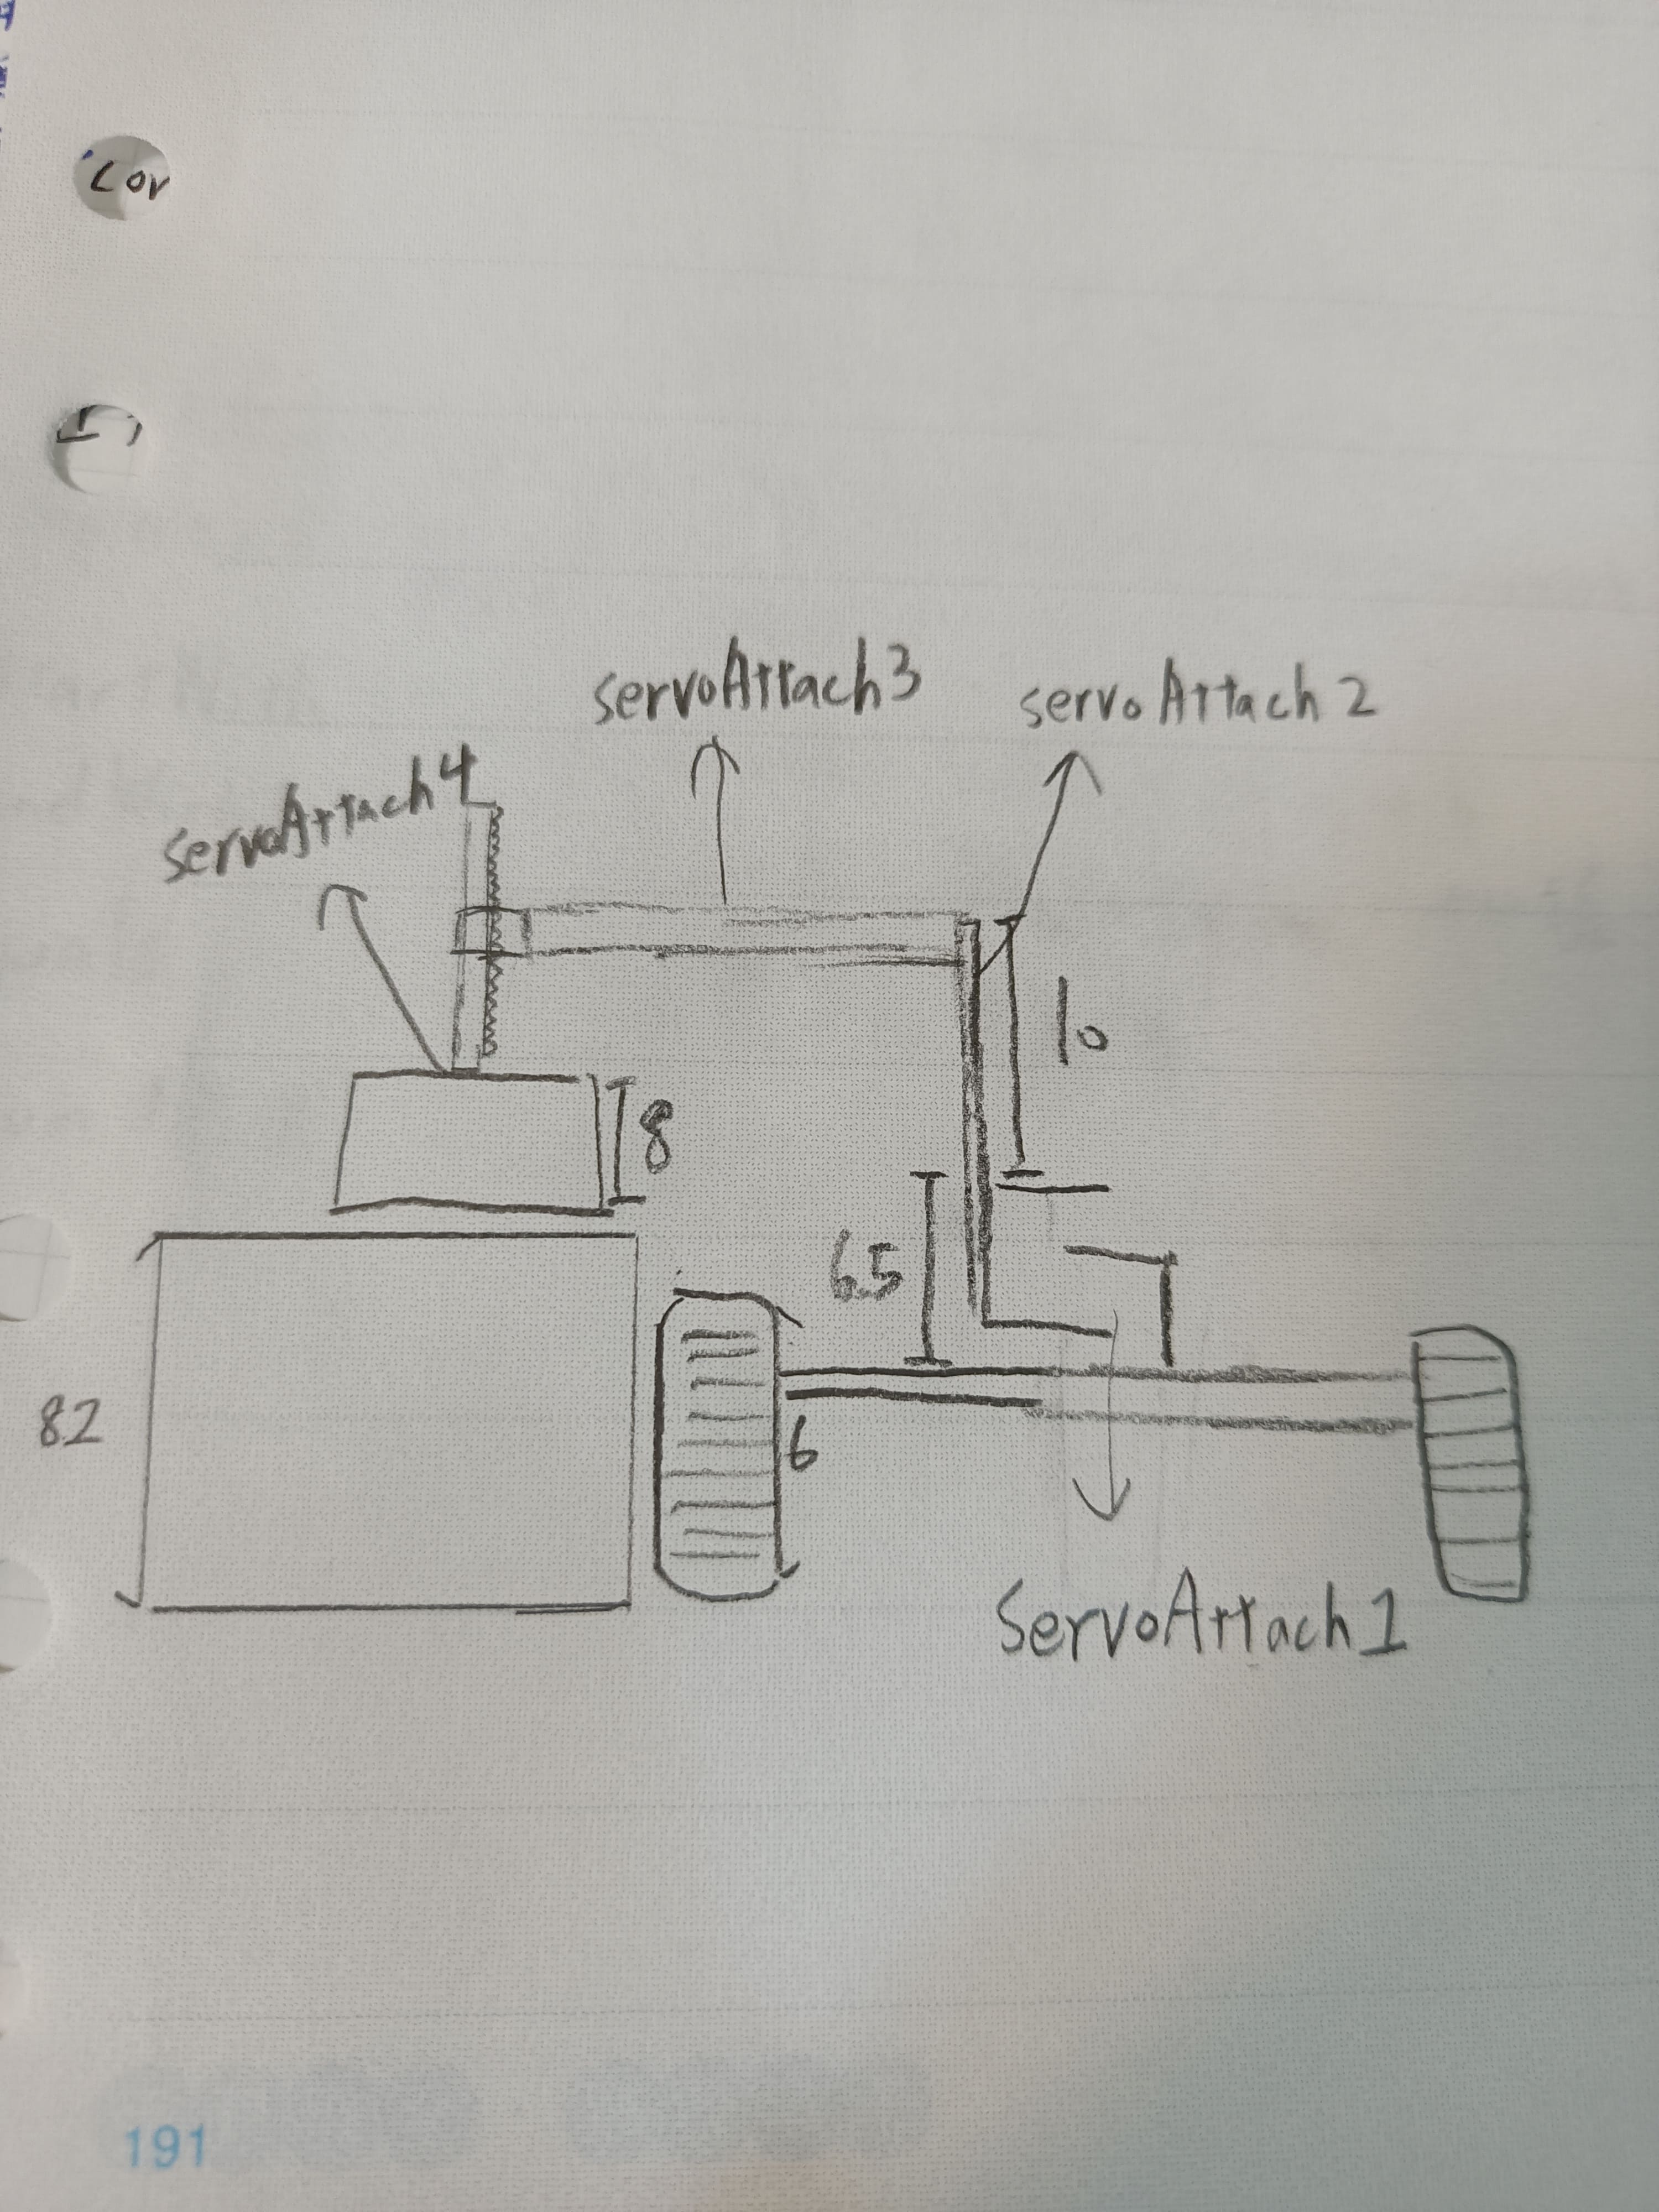 Cor
servoAttach3
servo Attach 2
servoAttach4
10
8
6.5
82
6
ServoAttach1
191